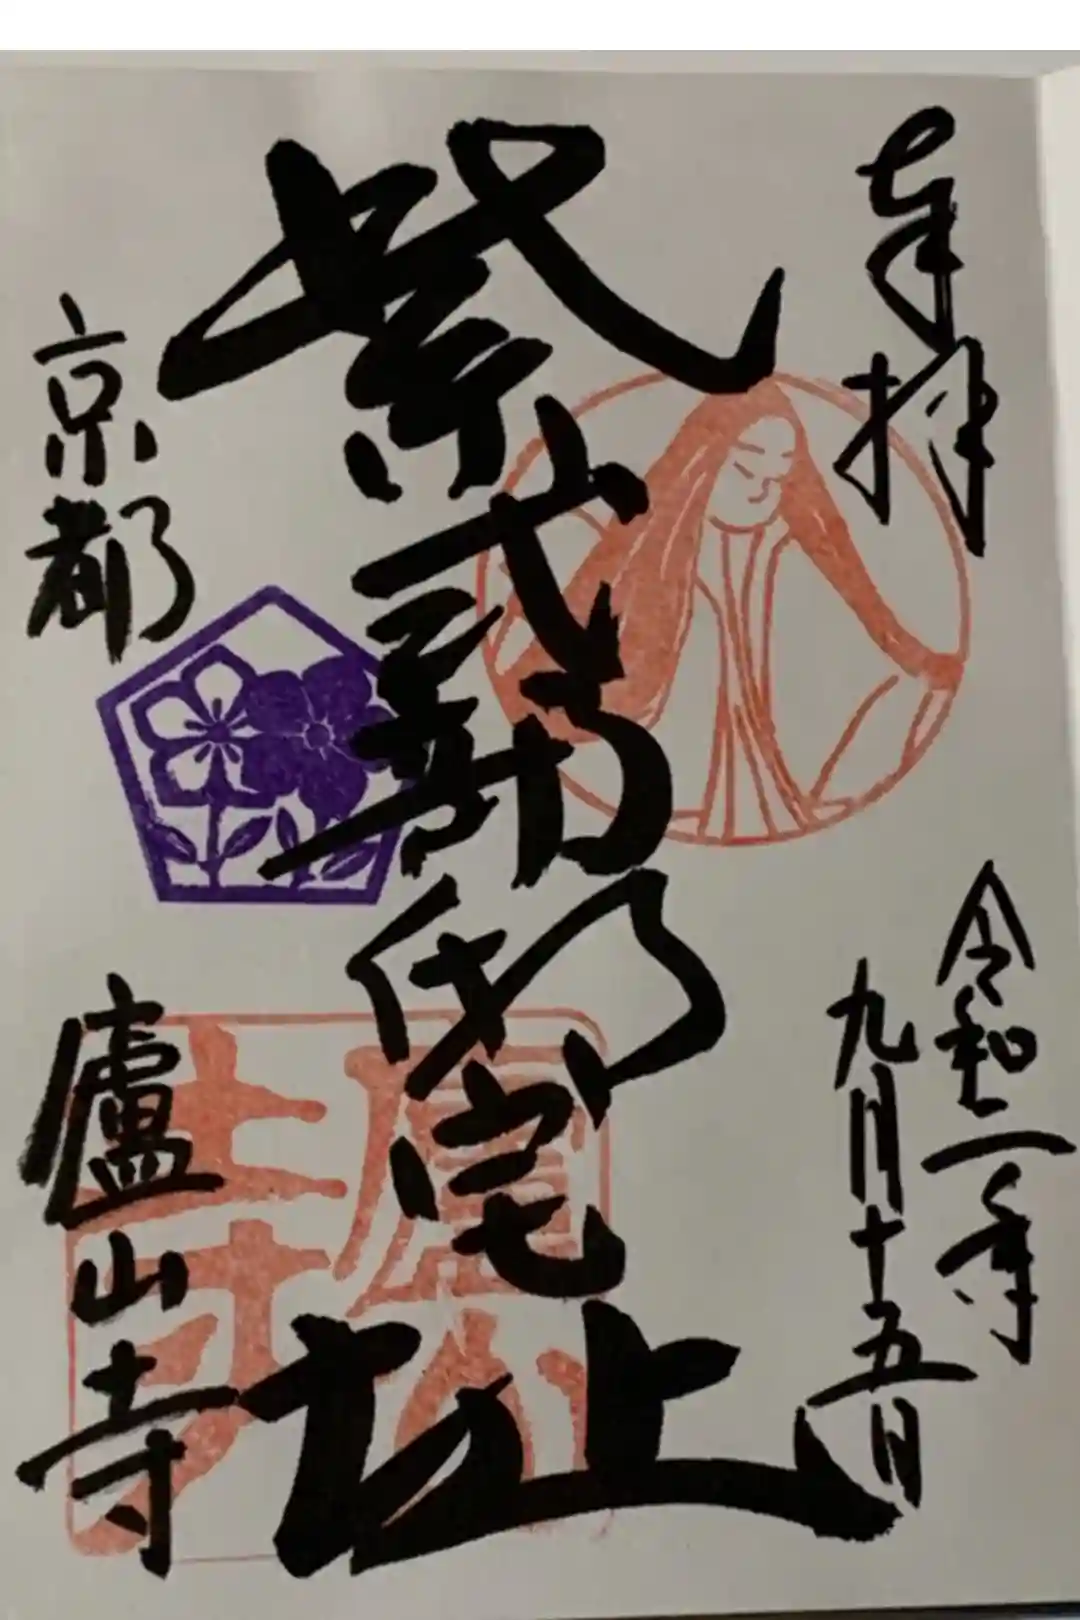 奉拝
令和二年
九月十五日
紫式部邸宅址
京都
廬山寺
廬山寺